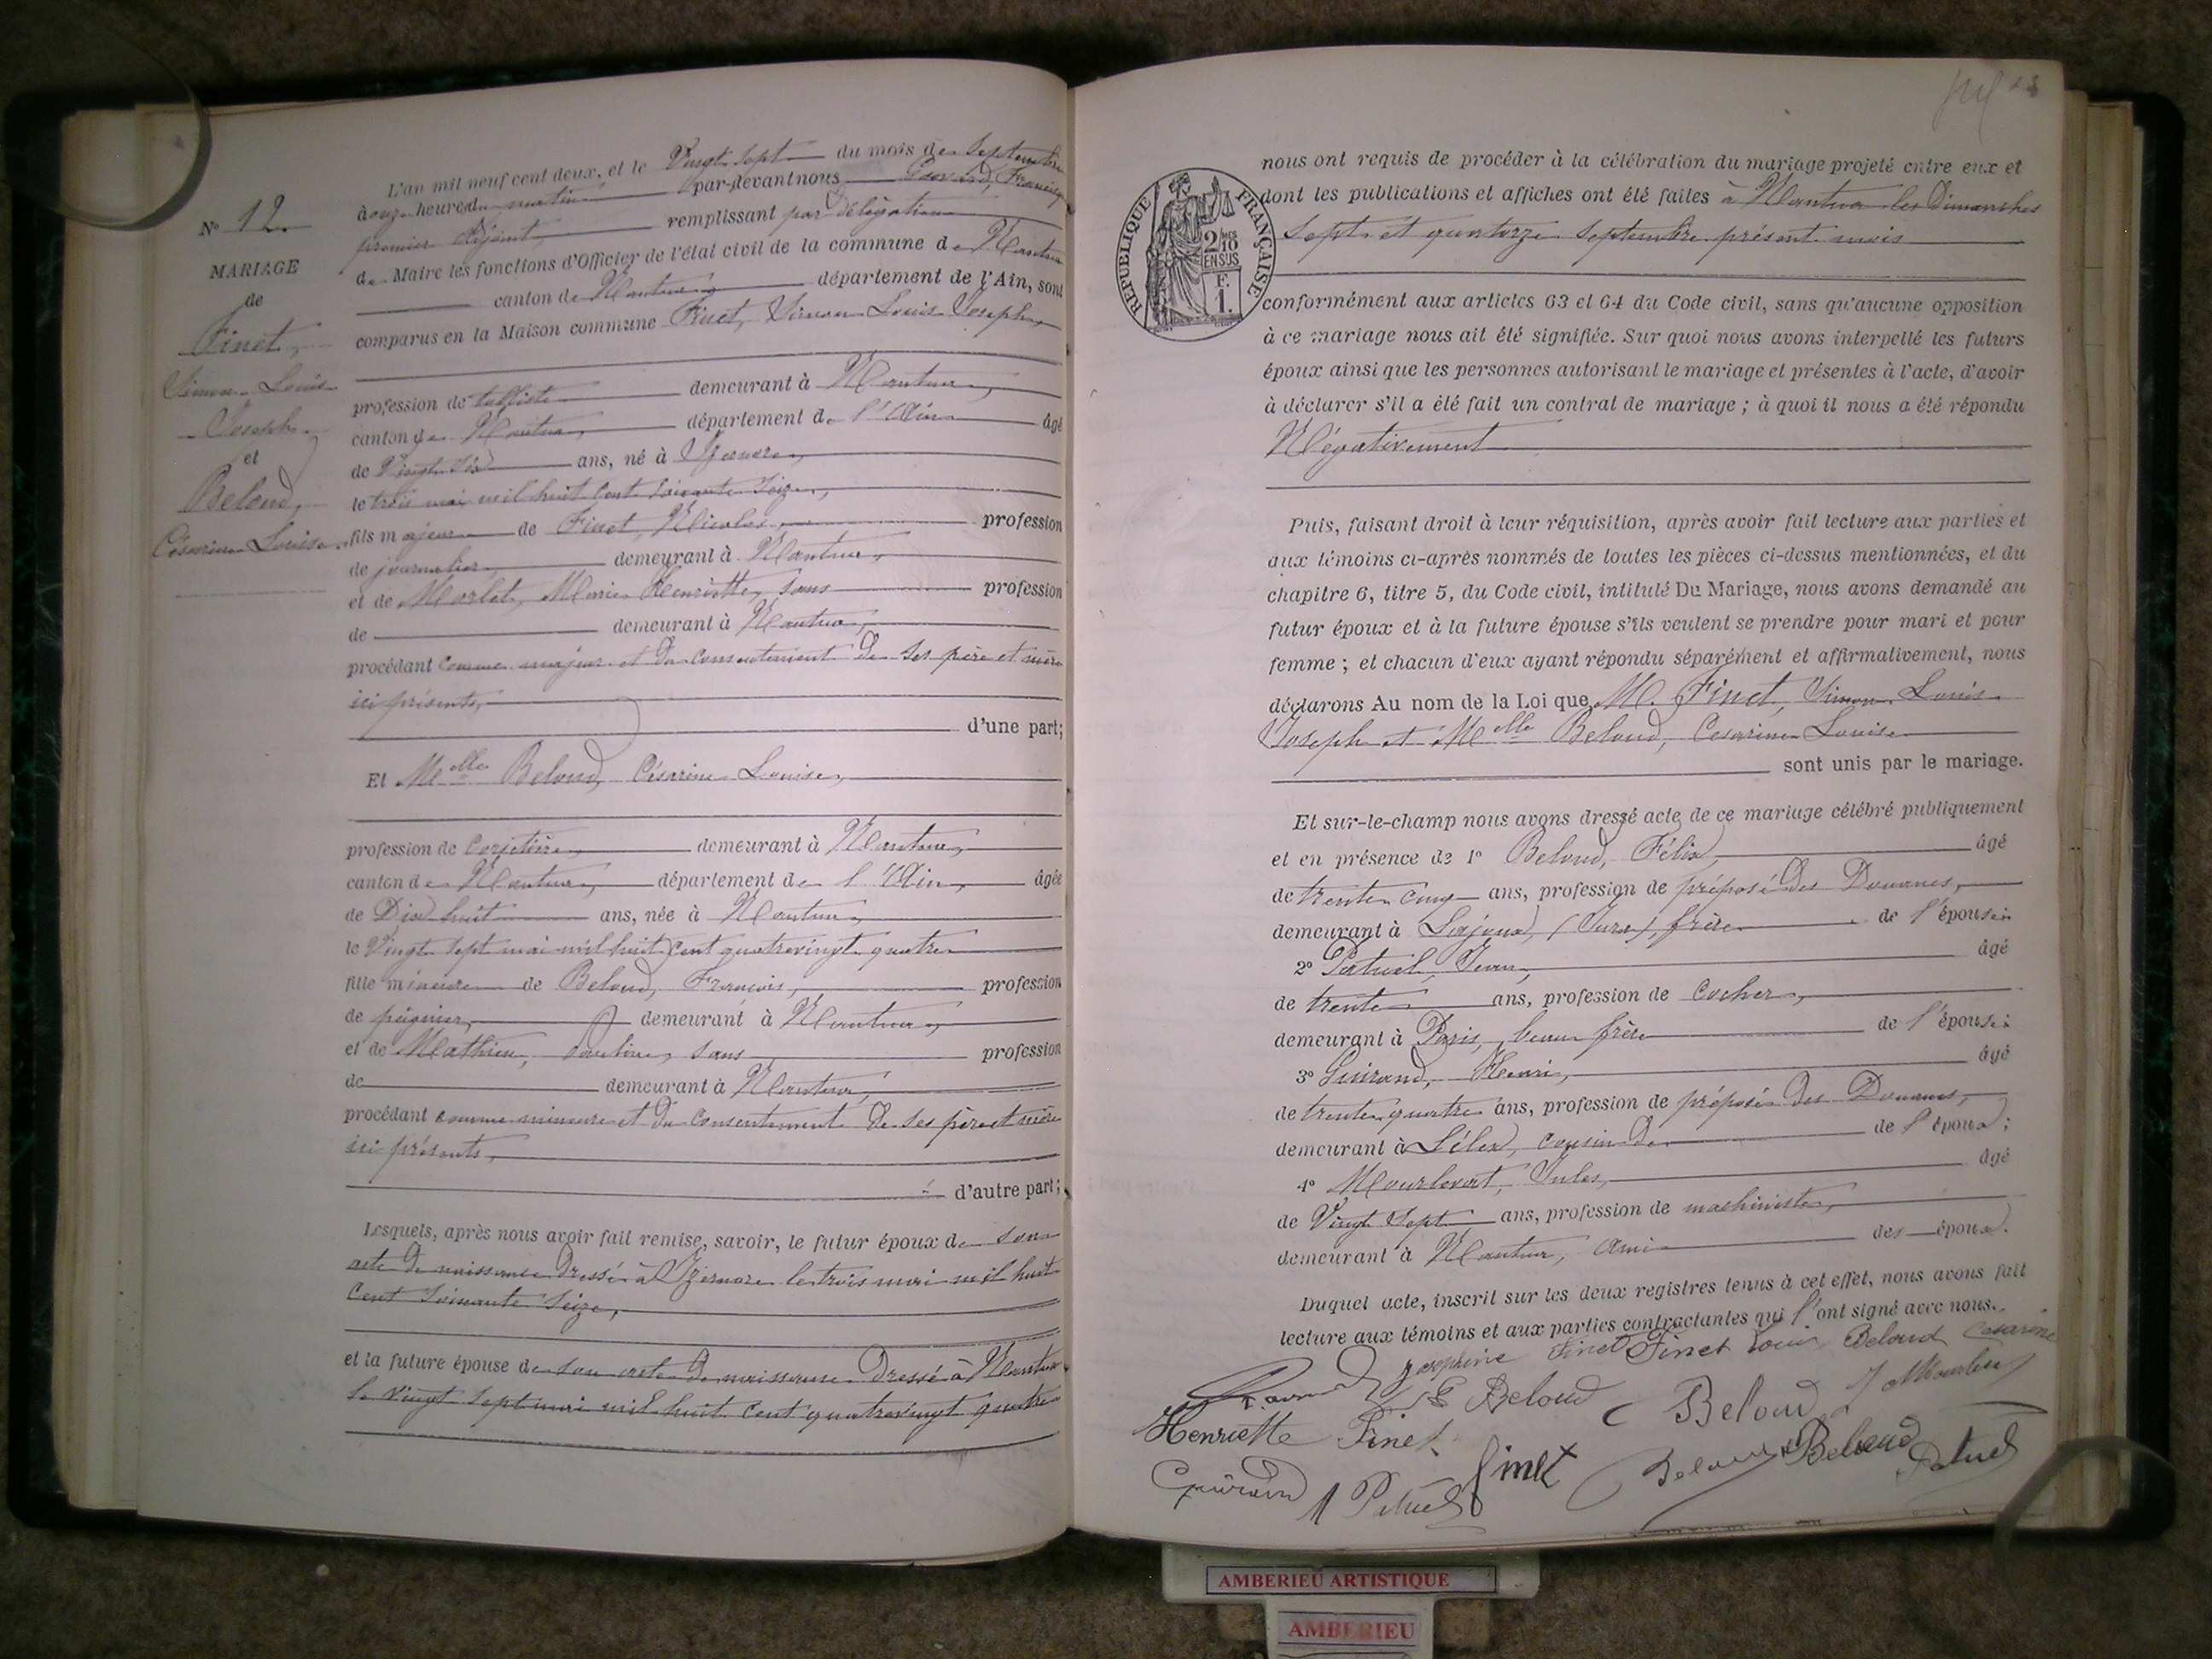 N° 12
MARIAGE
de
Finet,
Simon Louis
Joseph
et
Beloud,
Césarine Louise.
L'an mil neuf cent deux, et le Vingt sept du mois de Septembre
à onze heures du matin par-devant nous Francisque
premier adjoint, remplissant par délégation
de Maire les fonctions d'Officier de l'état civil de la commune de Nantua
canton de Nantua, département de l'Ain, sont
comparus en la Maison commune Finet, Simon Louis Joseph,
profession de demeurant à Nantua,
canton de Nantua, département de l'Ain âgé
de Vingt six ans, né à Izernore,
le trois mai mil huit cent soixante seize,
fils majeur de Finet, Nicolas profession
de journalier, demeurant à Nantua,
et de Marlet, Marie Henriette, sans profession
de demeurant à Nantua,
procédant comme majeur et du consentement de ses père et mère
ici présents,
d'une part;
Et Melle Beloud, Césarine Louise,
profession de demeurant à Nantua,
canton de Nantua, département de l'Ain, âgée
de Dix huit ans, née à Nantua,
le Vingt sept mai mil huit cent quatre vingt quatre
fille mineure de Beloud, François, profession
de peignier, demeurant à Nantua,
et de Mathieu, Pauline, sans profession
de demeurant à Nantua,
procédant comme mineure et du consentement de ses père et mère
ici présents,
d'autre part;
Lesquels, après nous avoir fait remise, savoir, le futur époux de son
acte de naissance dressé à Izernore le trois mai mil huit
cent soixante seize,
et la future épouse de son acte de naissance dressé à Nantua
le vingt sept mai mil huit cent quatre vingt quatre
RÉPUBLIQUE FRANÇAISE
2/10
EN SUS
F.
1.
nous ont requis de procéder à la célébration du mariage projeté entre eux et
dont les publications et affiches ont été faites à Nantua les Dimanches
Sept et quatorze Septembre présent mois
conformément aux articles 63 et 64 du Code civil, sans qu'aucune opposition
à ce mariage nous ait été signifiée. Sur quoi nous avons interpellé les futurs
époux ainsi que les personnes autorisant le mariage et présentes à l'acte, d'avoir
à déclarer s'il a été fait un contrat de mariage ; à quoi il nous a été répondu
Négativement
Puis, faisant droit à leur réquisition, après avoir fait lecture aux parties et
aux témoins ci-après nommés de toutes les pièces ci-dessus mentionnées, et du
chapitre 6, titre 5, du Code civil, intitulé Du Mariage, nous avons demandé au
futur époux et à la future épouse s'ils veulent se prendre pour mari et pour
femme ; et chacun d'eux ayant répondu séparément et affirmativement, nous
déclarons Au nom de la Loi que M. Finet, Simon Louis
Joseph et Melle Beloud, Césarine Louise
sont unis par le mariage.
Et sur-le-champ nous avons dressé acte de ce mariage célébré publiquement
et en présence de 1° Beloud, Félix, âgé
de trente cinq ans, profession de préposé des Douanes,
demeurant à Lajoux, (Jura), frère de l'épouse
2° Patuel, Jean, âgé
de trente ans, profession de cocher,
demeurant à Paris, beau frère de l'épouse
3° Guirand, Henri, âgé
de trente quatre ans, profession de préposé des Douanes,
demeurant à Lélex, cousin de de l'époux;
4° Jules, âgé
de Vingt sept ans, profession de machiniste,
demeurant à Nantua, ami des époux.
Duquel acte, inscrit sur les deux registres tenus à cet effet, nous avons fait
lecture aux témoins et aux parties contractantes qui l'ont signé avec nous.
Joséphine Finet Finet Louis Beloud Césarine
Beloud Beloud
Henriette Finet
Finet Beloud Patuel
Guirand Patuel
AMBERIEU ARTISTIQUE
AMBERIEU